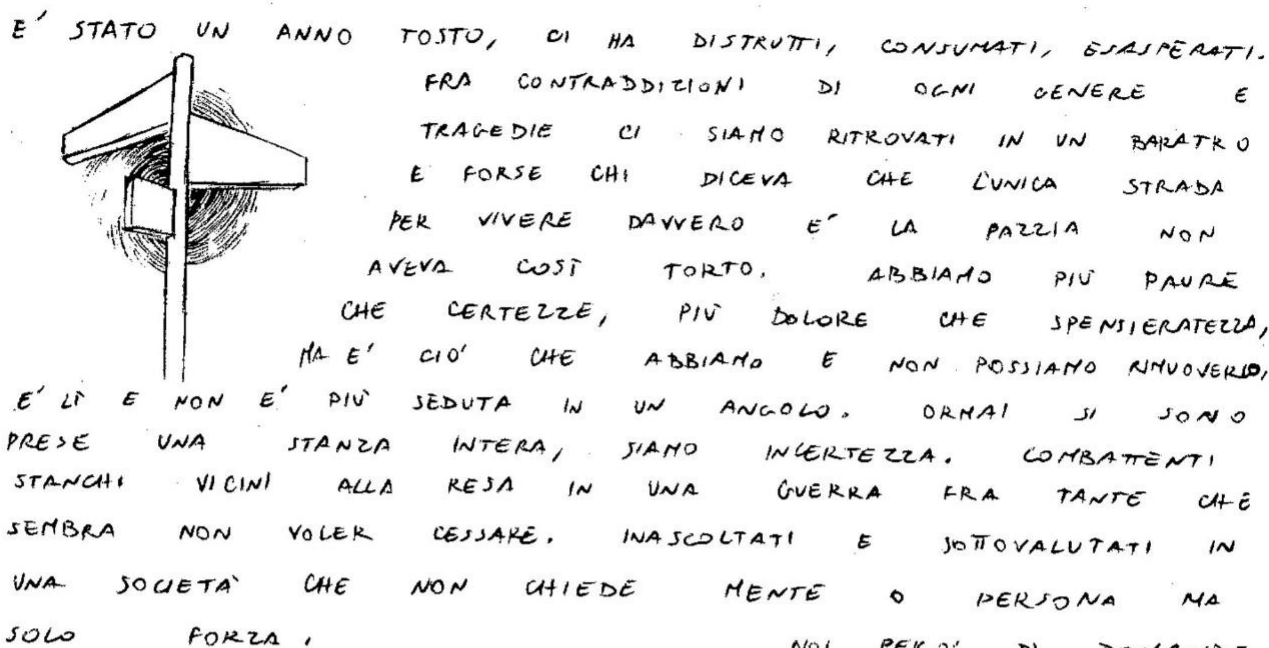 E' STATO UN ANNO TOSTO, CI HA DISTRUTTI, CONSUMATI, ESASPERATI.
FRA CONTRADDIZIONI DI OGNI GENERE E
TRAGEDIE CI SIAMO RITROVATI IN UN BARATRO
E FORSE CHI DICEVA CHE L'UNICA STRADA
PER VIVERE DAVVERO E' LA PAZZIA NON
AVEVA COSÌ TORTO. ABBIAMO PIÙ PAURE
CHE CERTEZZE, PIÙ DOLORE CHE SPENSIERATEZZA,
MA E' CIO' CHE ABBIAMO E NON POSSIAMO RIMUOVERLO,
E' LÌ E NON E' PIÙ SEDUTA IN UN ANGOLO. ORMAI SI SONO
PRESE UNA STANZA INTERA, SIAMO INCERTEZZA. COMBATTENTI
STANCHI VICINI ALLA RESA IN UNA GUERRA FRA TANTE CHE
SEMBRA NON VOLER CESSARE. INASCOLTATI E SOTTOVALUTATI IN
UNA SOCIETA' CHE NON CHIEDE MENTE O PERSONA MA
SOLO FORZA. NOI PERO' DI